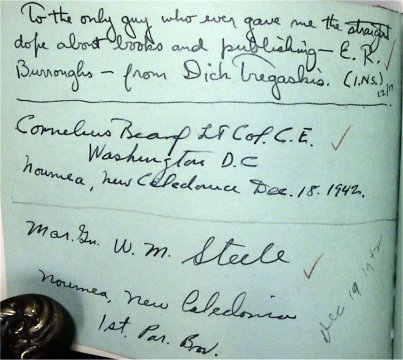 To the only guy who ever gave me the straight
dope about books and publishing — E. R.
Burroughs — from Dick Tregaskis. (I.N.S.)
12/17
Cornelius Lt Col. C. E.
Washington D.C
Noumea, New Caledonia Dec. 18. 1942.
Mar. Gn. W. M. Steele
Noumea, New Caledonia
1st. Par. Bn.
Dec 19 1942